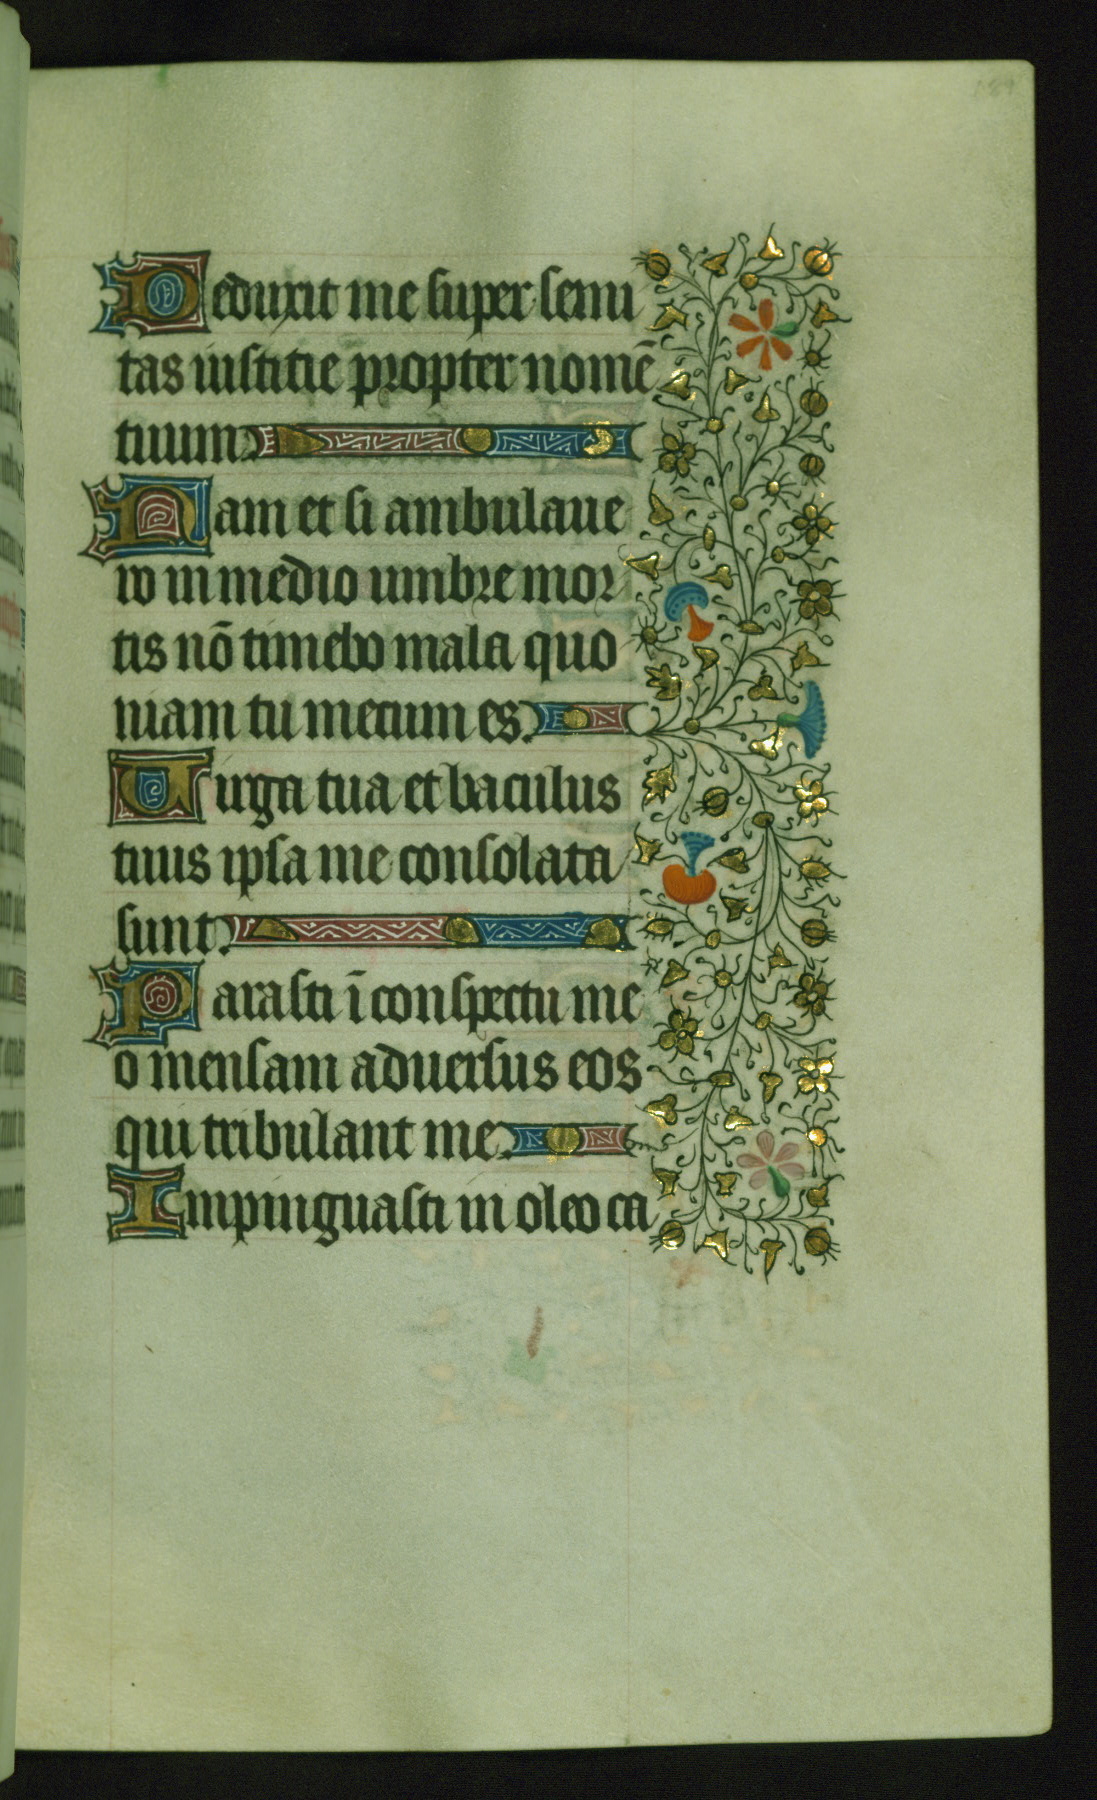 Deduxit me super semi
tas iusticie propter nomē
tuum.
Nam et si ambulaue
ro in medio umbre mor
tis nō timebo mala quo
niam tu mecum es.
Uirga tua et baculus
tuus ipsa me consolata
sunt.
Parasti ī conspectu me
o mensam aduersus eos
qui tribulant me.
Impinguasti in oleo ca